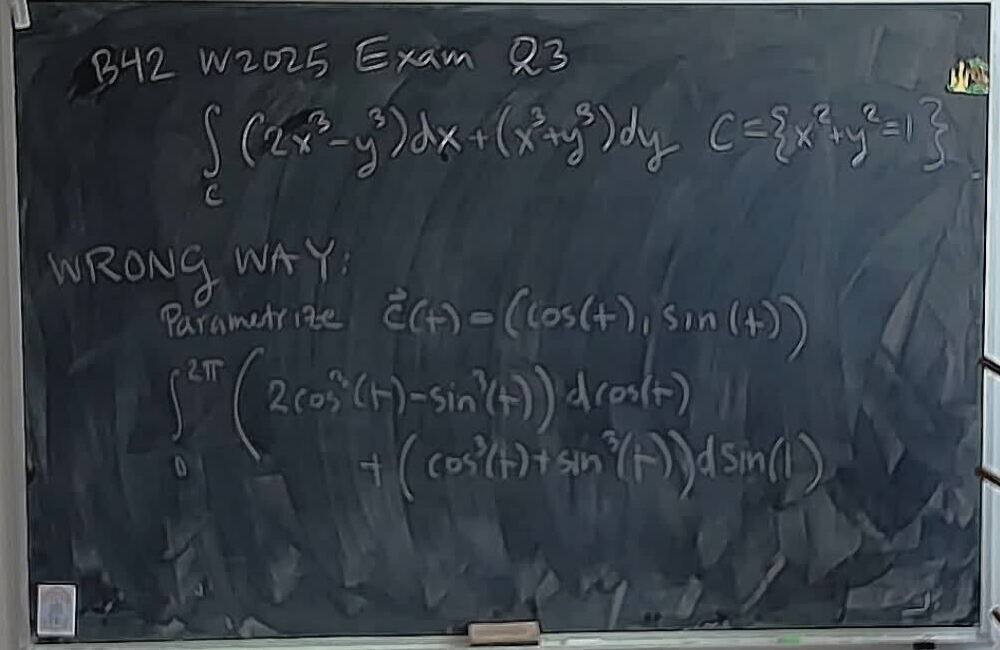 B42 W2025 Exam Q3
∫_C (2x³-y³)dx+(x³+y³)dy C={x²+y²=1}
WRONG WAY:
Parametrize c⃗(t)=(cos(t), sin(t))
∫_0^{2π} (2cos³(t)-sin³(t))dcos(t)
+(cos³(t)+sin³(t))dsin(1)